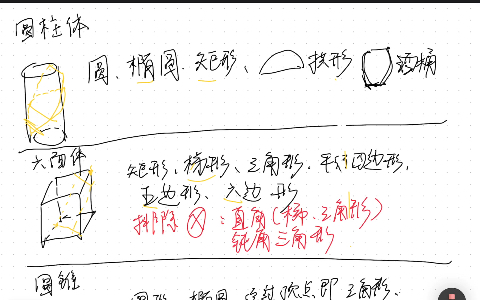 圆柱体
圆、椭圆、矩形、拱形 酒桶
六面体
矩形、梯形、三角形、平行四边形,
五边形、六边形
排除 ⊗:直角(梯、三角形)
钝角三角形
圆锥
圆形、椭圆、过顶点即三角形、